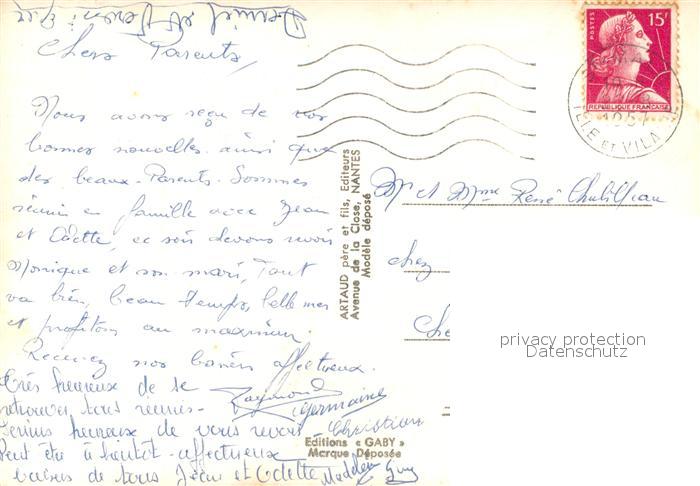 Daniel et
Chers Parents,
Nous avons reçu de vos
bonnes nouvelles ainsi que
des beaux-Parents. Sommes
réunis en famille avec Jean
et Odette, ce soir devons revoir
Monique et son mari, Tout
va bien, beau temps, belle mer
et profitons au maximum.
Recevez nos baisers affectueux.
Très heureux de se
retrouver tous réunis.
Raymond
Germaine
heureux de vous revoir
Christian
Peut être à bientôt affectueux
baisers de tous Jean et Odette Madeleine Guy
ARTAUD père et fils, Editeurs
Avenue de la Close, NANTES
Modèle déposé
Editions « GABY »
Marque Déposée
POSTES
15F
REPUBLIQUE FRANÇAISE
1957
ILLE ET VILAINE
Mr et Mme René
chez
Che
privacy protection
Datenschutz